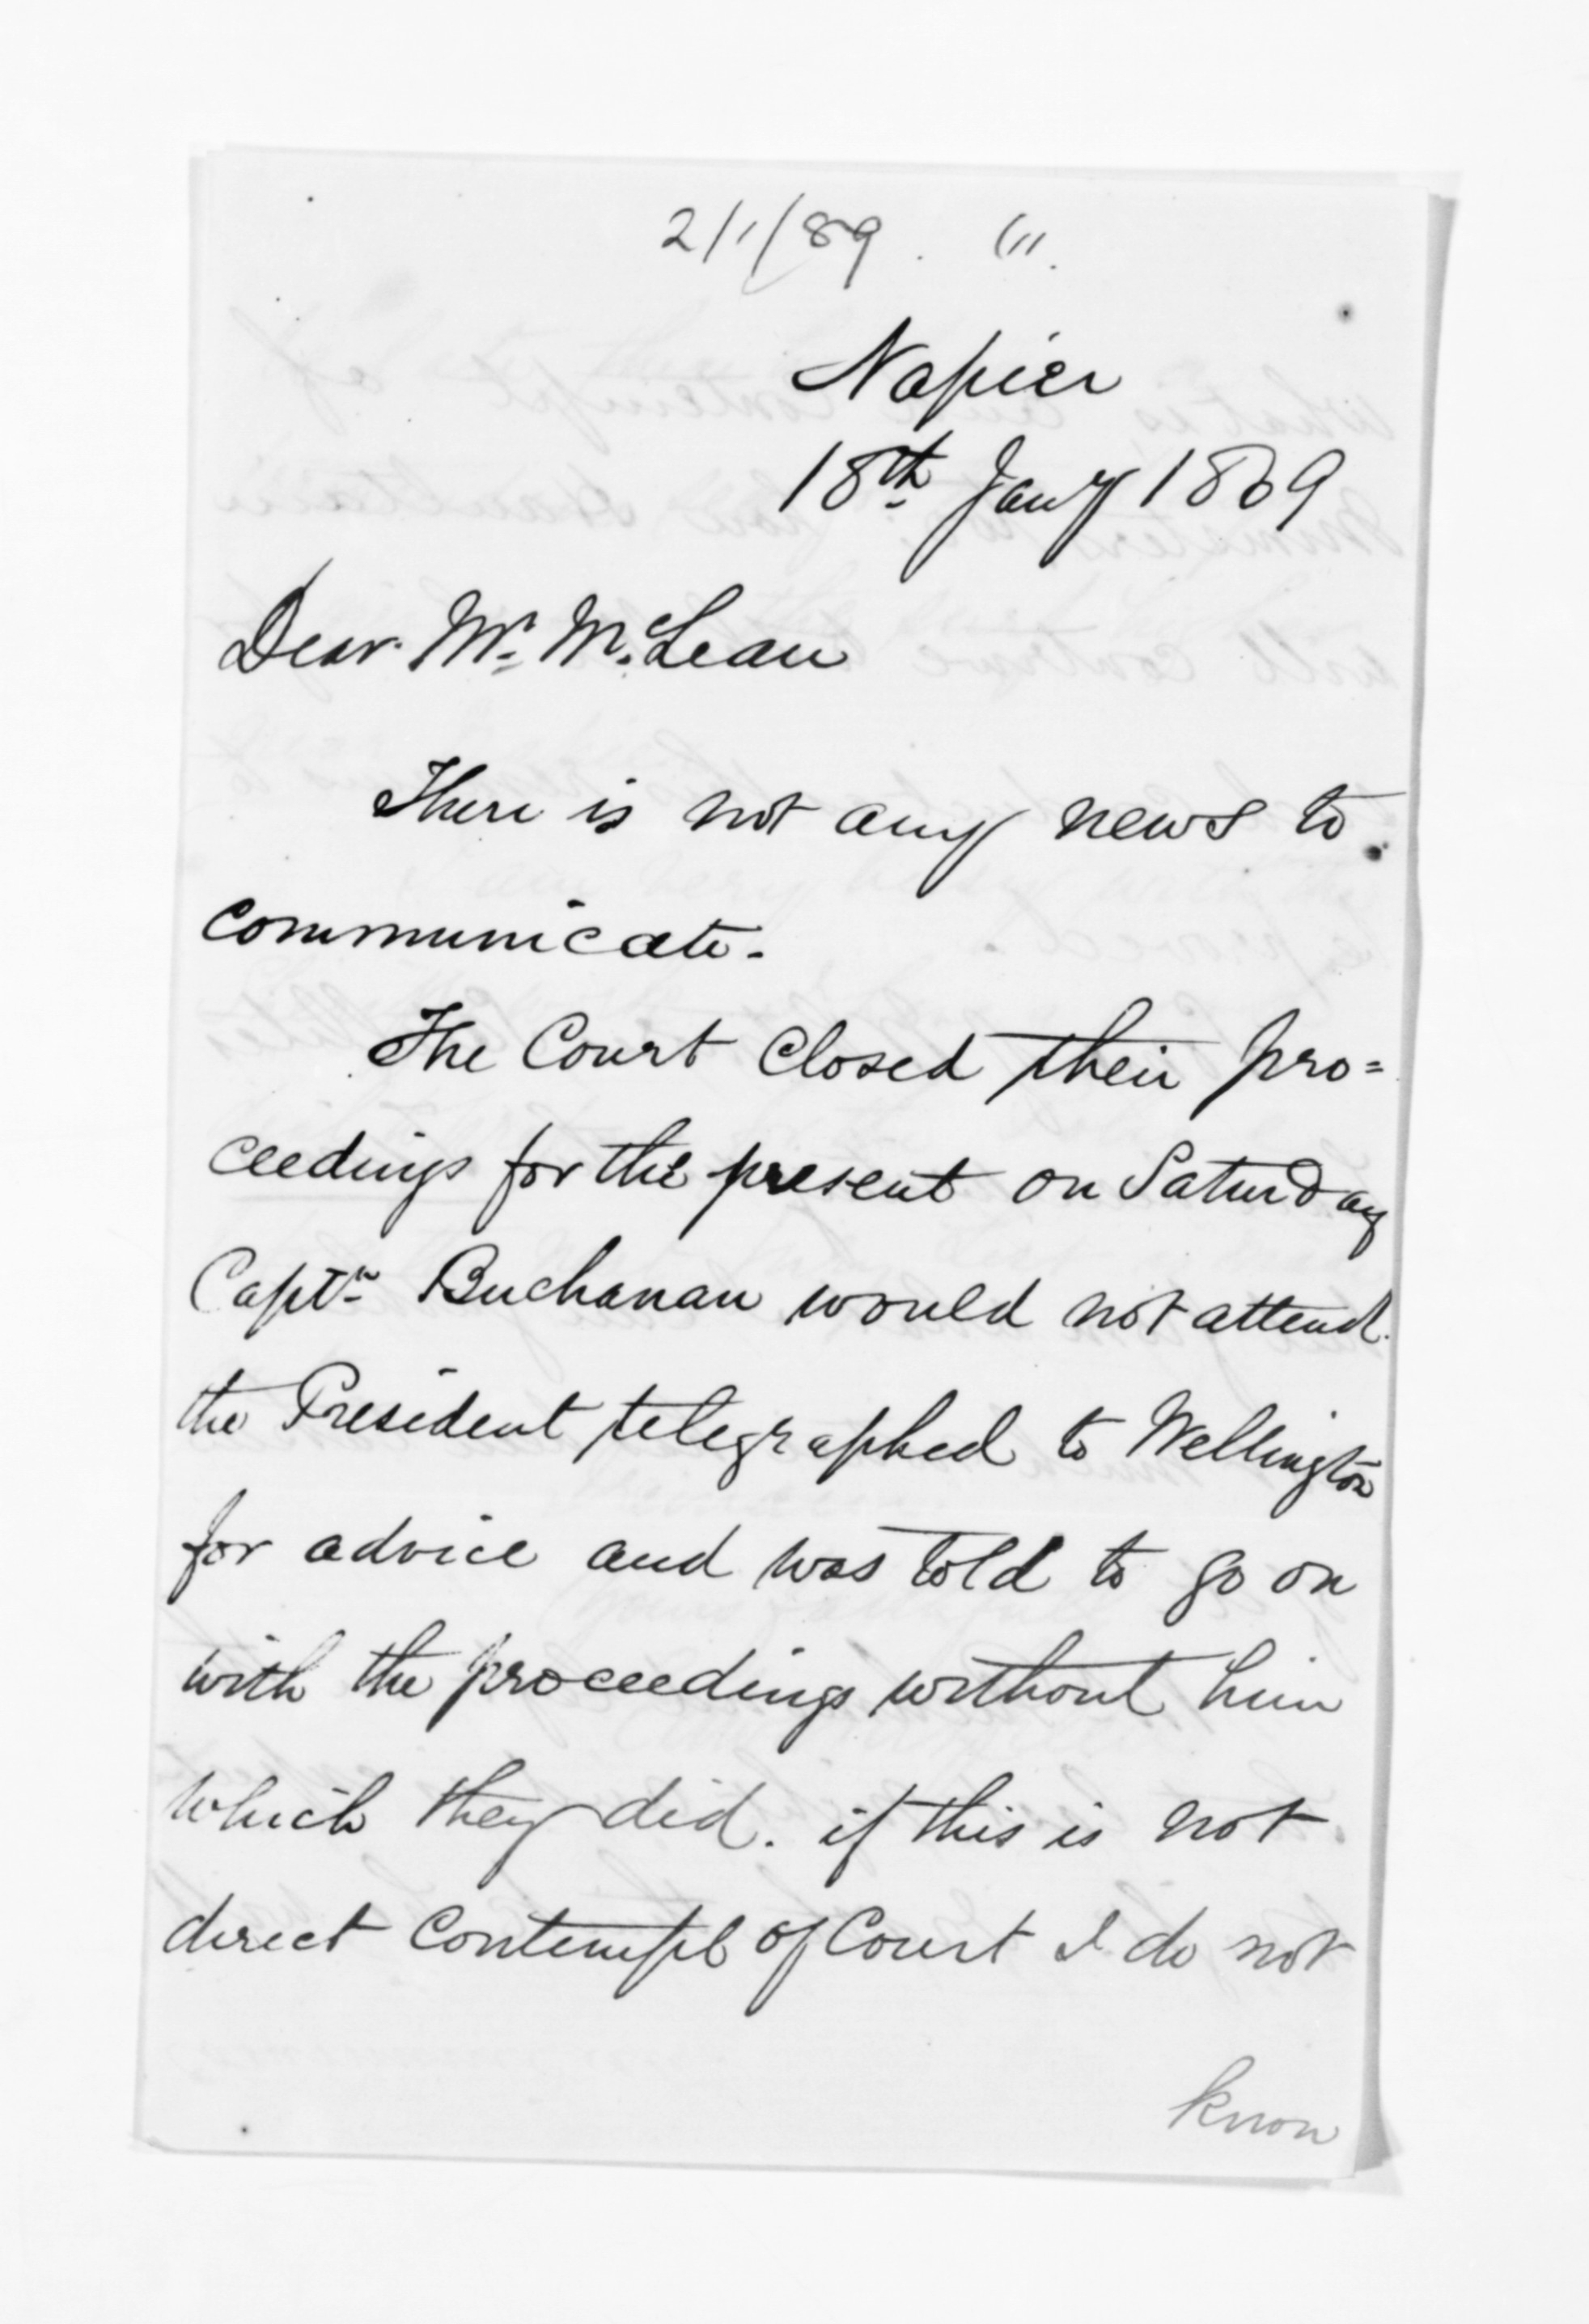 2/1/89. (11.
Napier
18th Jany 1869
Dear Mr. McLean
There is not any news to
communicate.
The Court closed their pro=
ceedings for the present on Saturday
Captn Buchanan would not attend.
the President telegraphed to Wellington
for advice and was told to go on
with the proceedings without him
which they did. if this is not
direct contempt of Court I do not
know